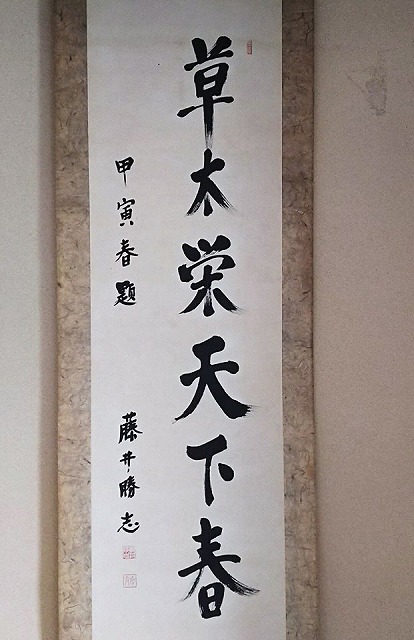 草木栄天下春
甲寅春題
藤井勝志